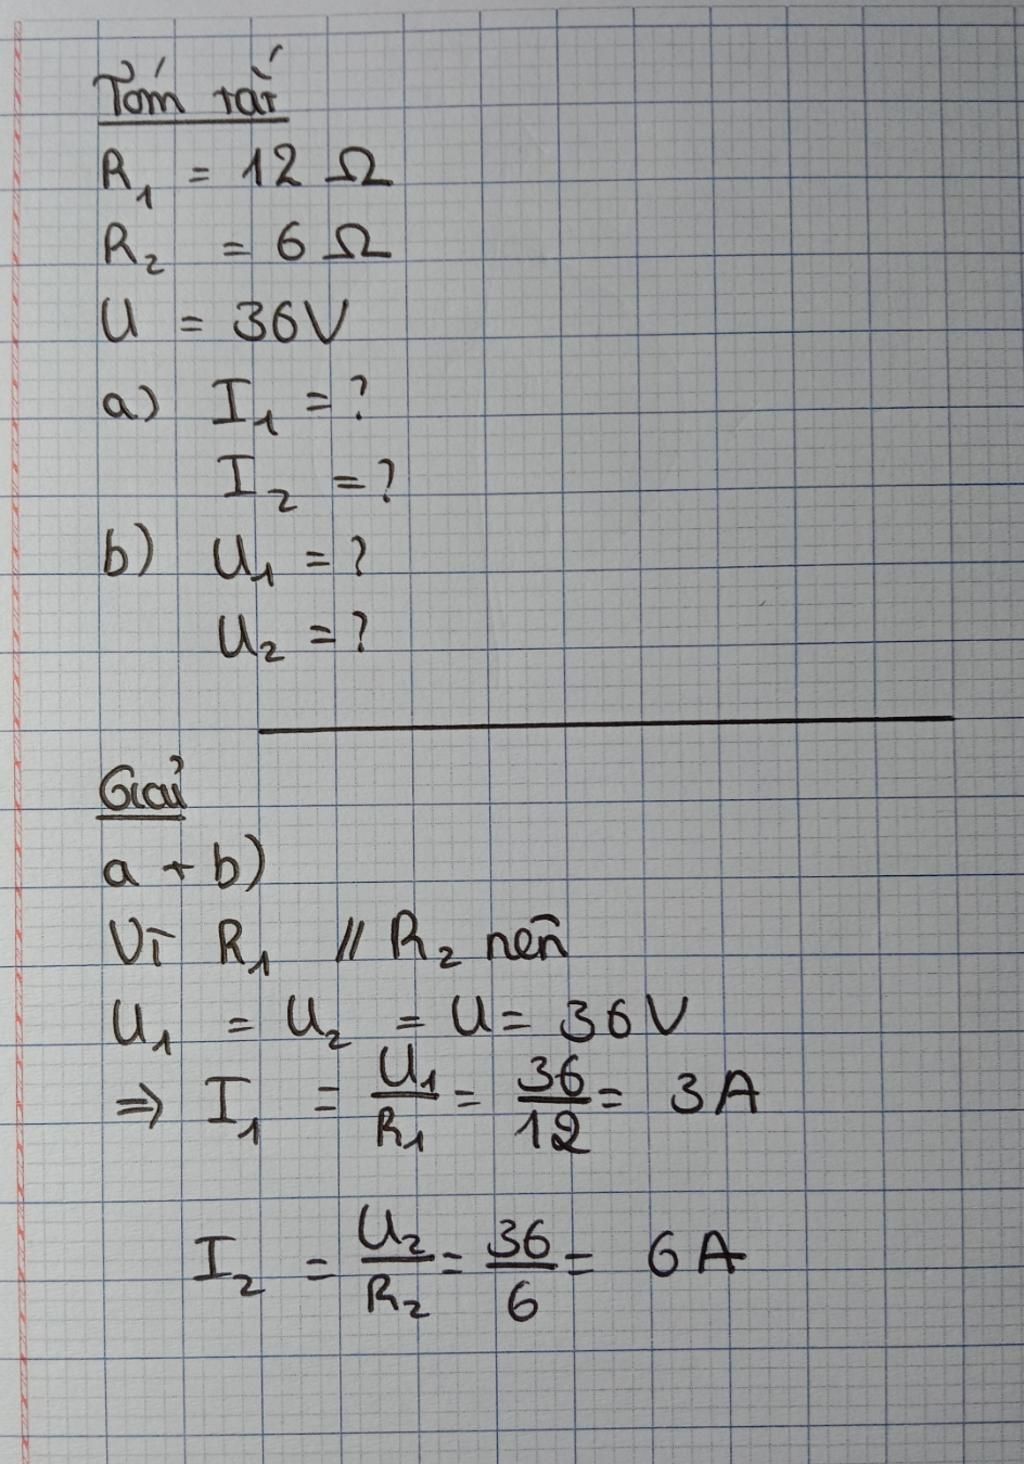 Tóm tắt
R₁ = 12 Ω
R₂ = 6 Ω
U = 36V
a) I₁ = ?
I₂ = ?
b) U₁ = ?
U₂ = ?
Giải
a + b)
Vì R₁ // R₂ nên
U₁ = U₂ = U = 36V
⇒ I₁ = U₁/R₁ = 36/12 = 3A
I₂ = U₂/R₂ = 36/6 = 6A